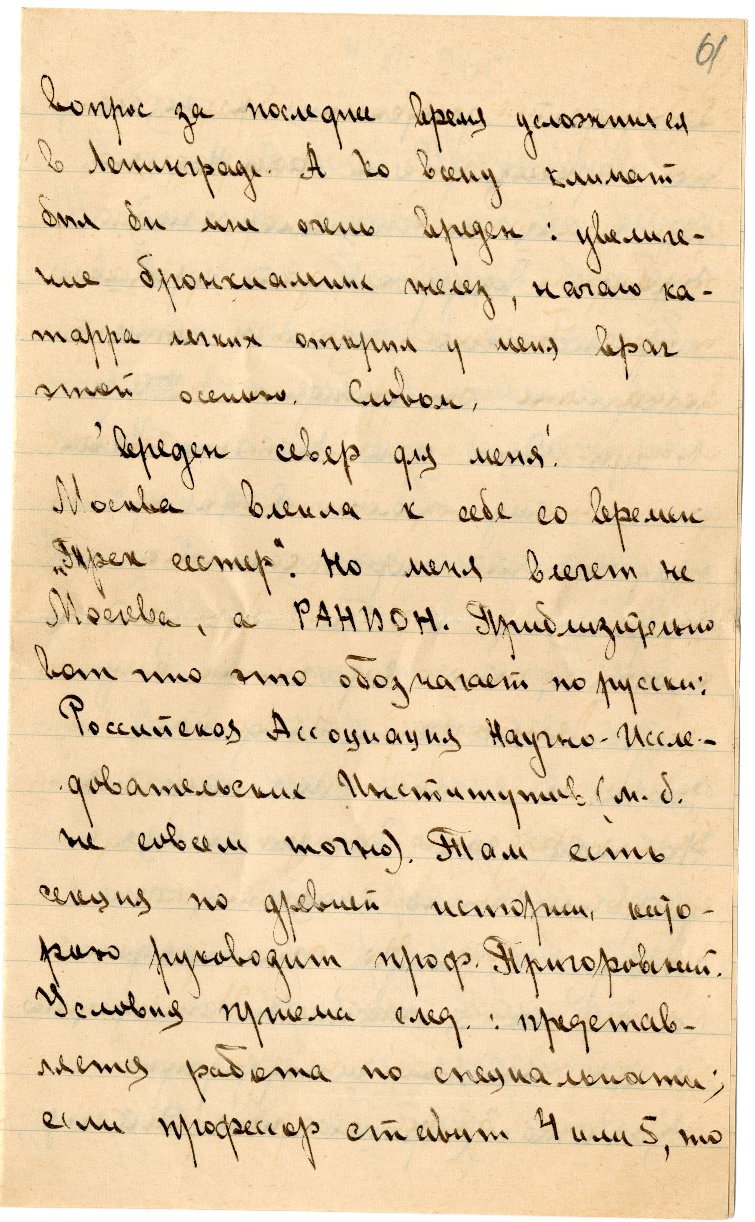 61
вопрос за последнее время усложнился
в Ленинграде. А ко всему климат
был бы мне очень вреден: увеличе-
ние бронхиальных желез, начало ка-
тарра легких открыл у меня врач
этой осенью. Словом,
"вреден север для меня".
Москва влекла к себе со времен
„Трех сестер“. Но меня влечет не
Москва, а РАНИОН. Приблизительно
вот что это обозначает по русски:
Российская Ассоциация Научно-Иссле-
довательских Институтов (м. б.
не совсем точно). Там есть
секция по древней истории, кото-
рою руководит проф. Пригоровский.
Условия приема след.: представ-
ляется работа по специальности;
если профессор ставит 4 или 5, то